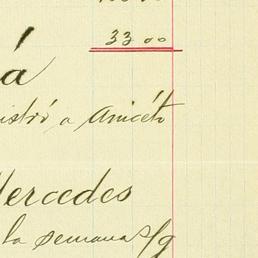 33 00
á
istró a Aniceto
Mercedes
la semana s/g